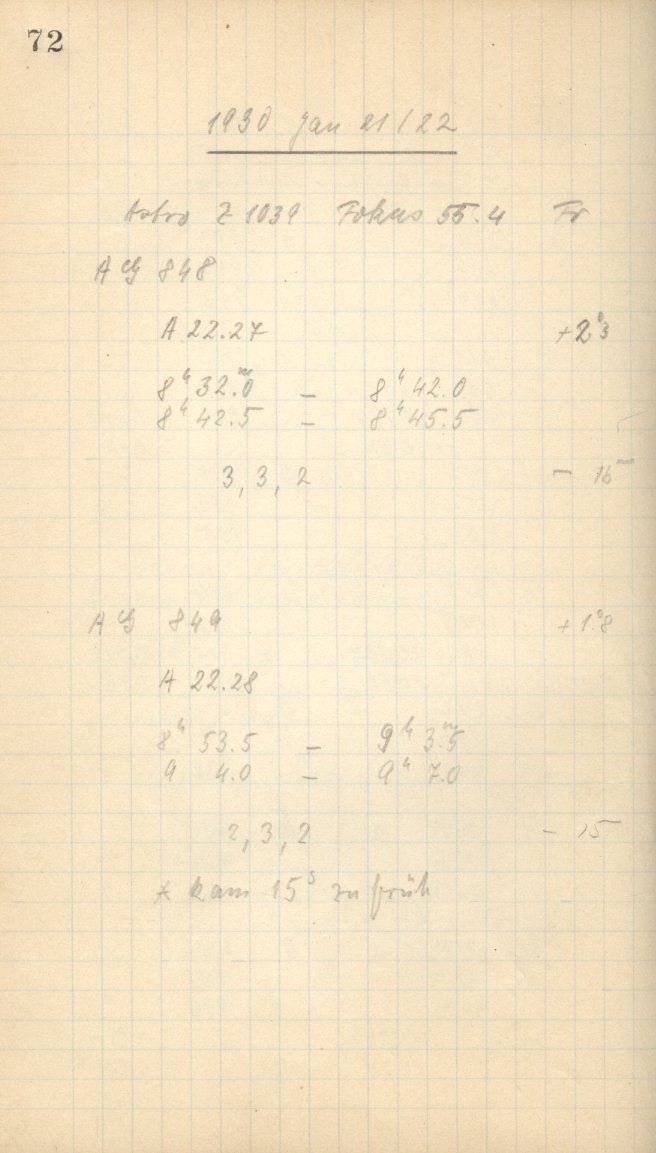 72
1930 Jan 21/22
Astro Z 1039 Fokus 55.4 Fr
AG 848
A 22.27 +2°.3
8h 32m.0 – 8h 42.0
8h 42.5 – 8h 45.5
3, 3, 2 – 16
AG 849 +1°.8
A 22.28
8h 53.5 – 9h 3m.5
9 4.0 – 9h 7.0
2, 3, 2 – 15
* kam 15s zu früh